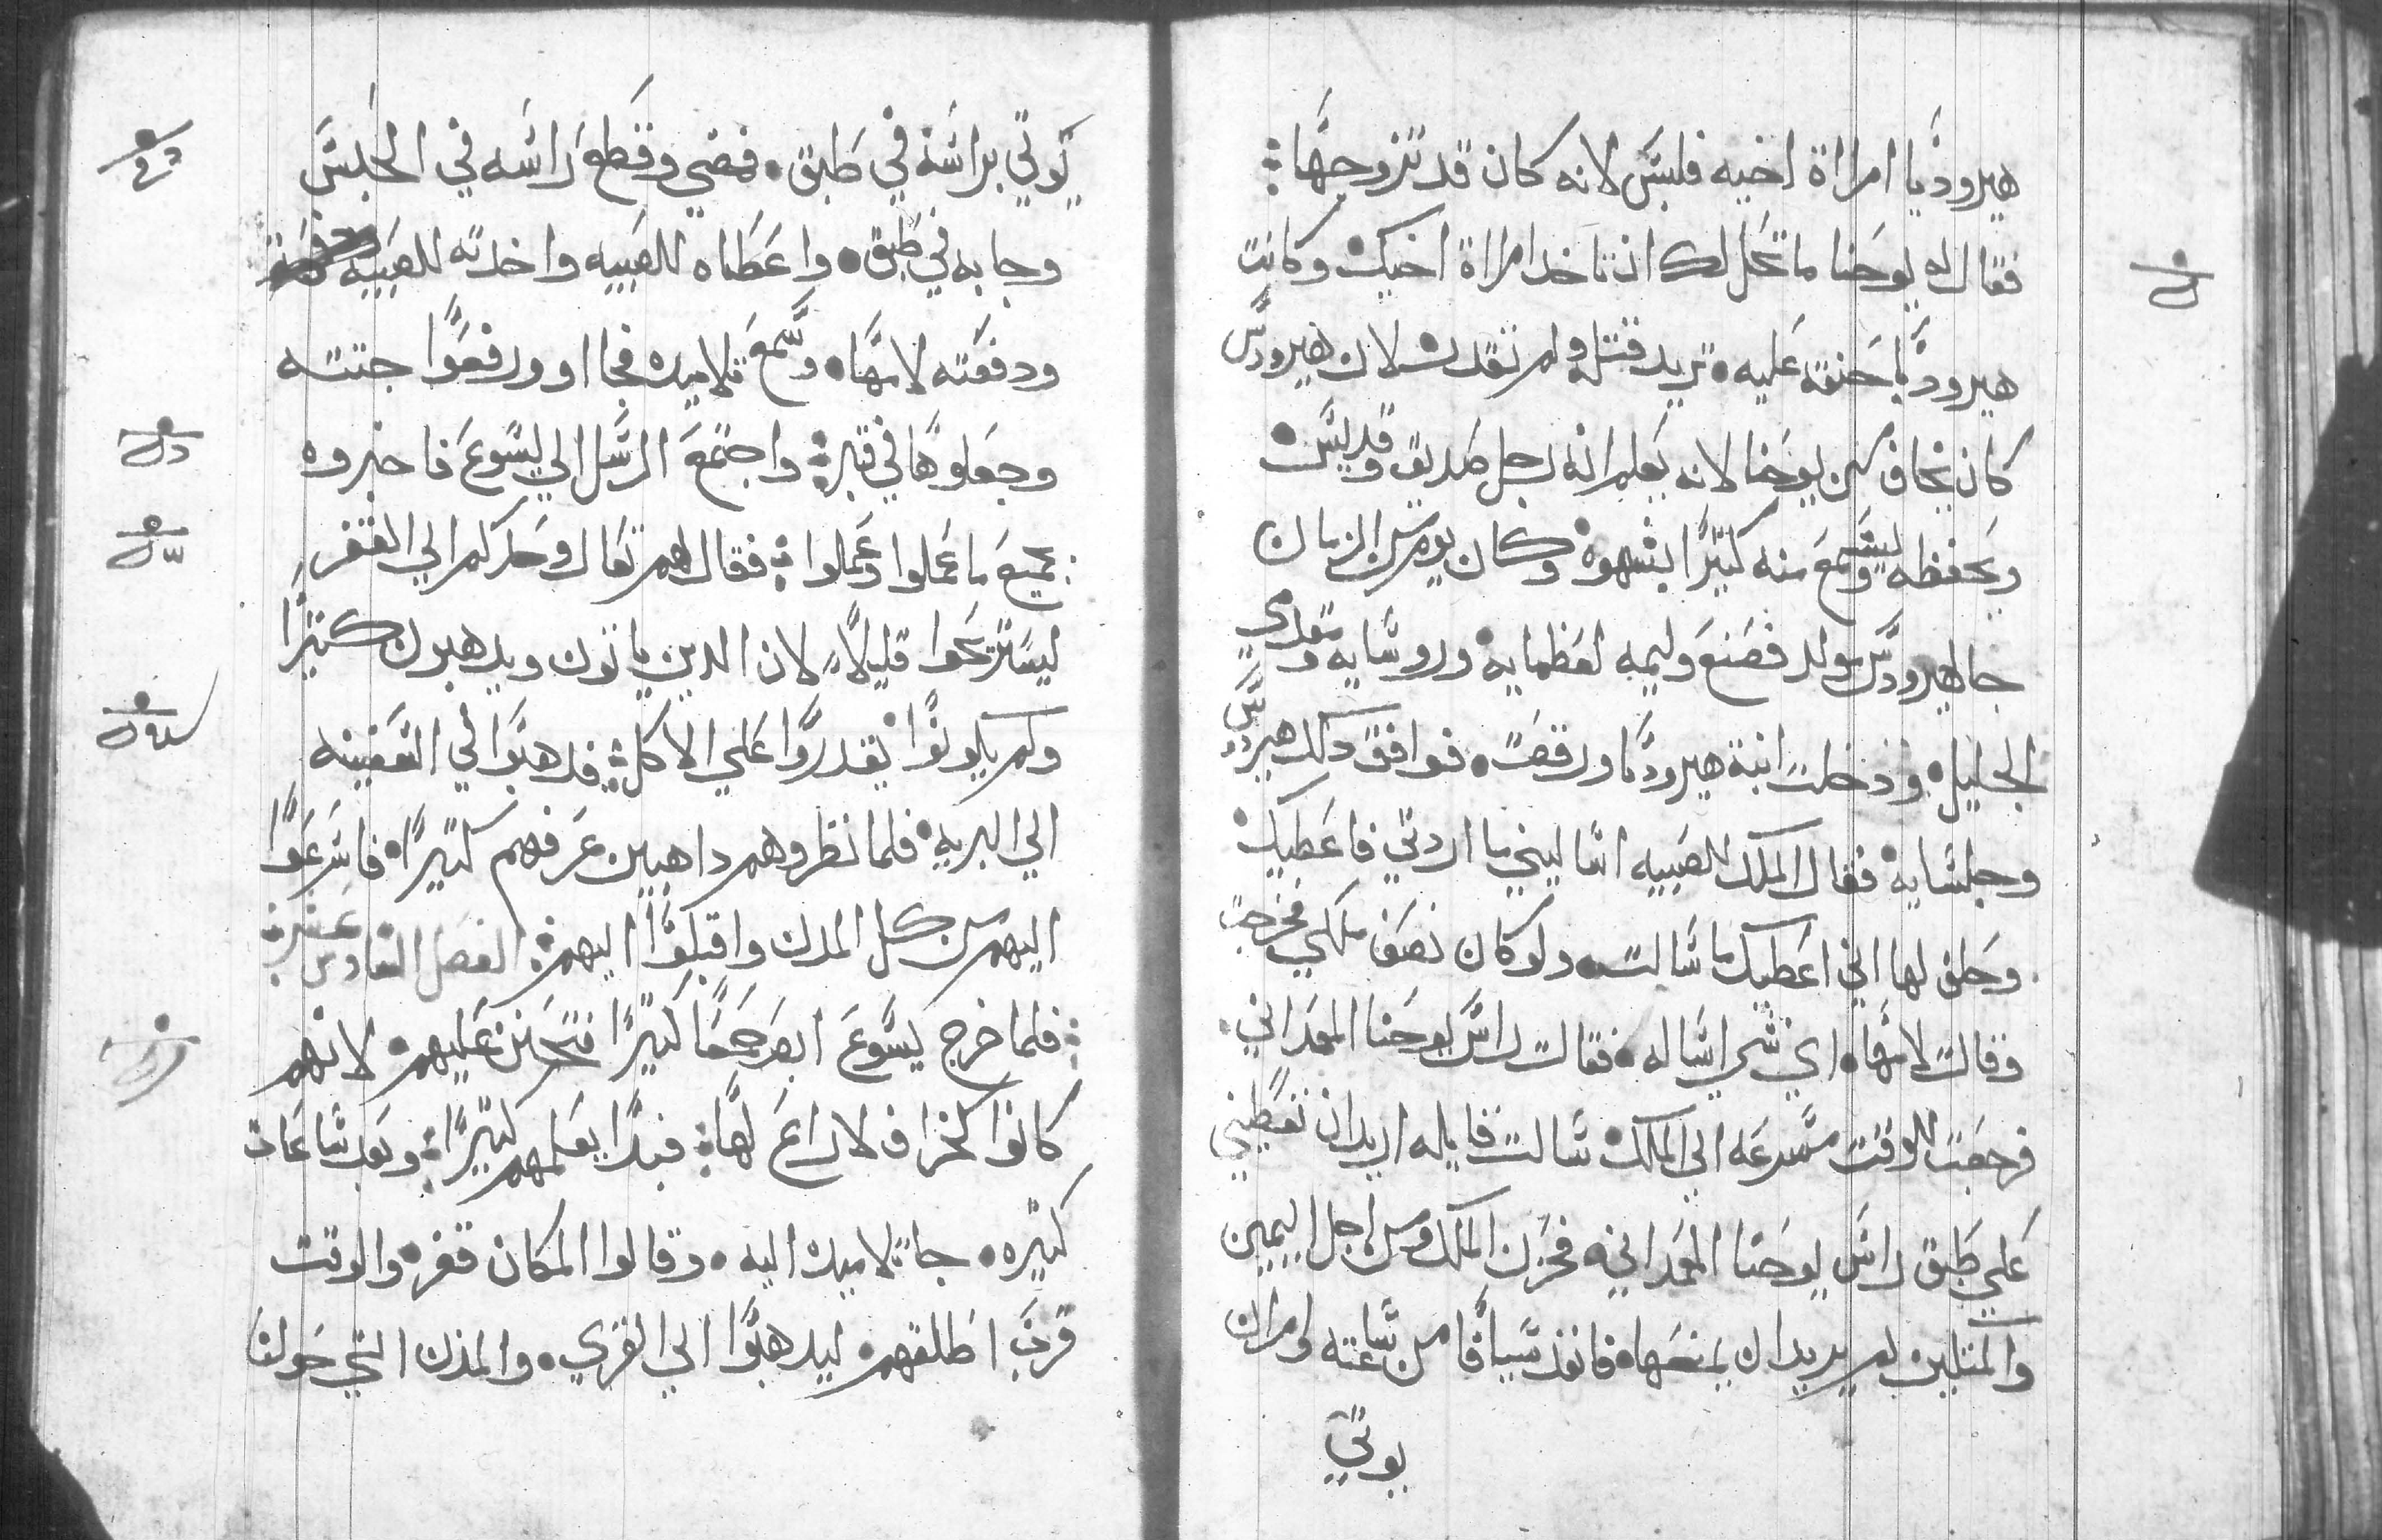 هيروديا امراة اخيه فلبس لانه كان قد تزوجها
فقال له يوحنا ما تحل لك ان تاخد امراة اخيك وكانت
هيروديا حنقه عليه تريد قتله ولم تقدر لان هيرودس
كان يخاف من يوحنا لانه يعلم انه رجل صديق وقديس
ويحفظه ويسمع منه كتيرا بشهوة وكان يوم من الزمان
جا لهيرودس مولد فصنع وليمه لعظمايه وروسايه ومقدمي
الجليل ودخلت ابنة هيروديا ورقصت فوافق دلك هيرودس
وجلسايه فقال الملك للصبيه اساليني ما اردتي فاعطيك
وحلف لها اني اعطيك ما سالت ولو كان نصف ملكي فخرجت
وقالت لامها اي شي اساله فقالت راس يوحنا المعمداني
فرجعت للوقت مسرعه الي الملك سالت قايله اريد ان تعطيني
علي طبق راس يوحنا المعمداني فحزن الملك ومن اجل اليمين
والمتكين لم يريد ان يمنعها فانفذ سيافا من ساعته وامر ان
يوتي
يوتي براسه في طبق فمضي وقطع راسه في الحبس
وجا به في طبق واعطاه للصبيه واخدته الصبيه
ودفعته لامها وسمع تلاميده فجااو ورفعوا جتته
وجعلوها في قبره واجتمع الرسل الي يسوع فاخبروه
بجميع ما عملوا وعملوا فقال لهم تعالو وحدكم الي القفر
ليستريحوا قليلا لان الدين ياتون ويدهبون كتيرا
ولم يكونوا يقدروا علي الاكل فدهبوا في السفينه
الي البريه فلما نظروهم داهبين عرفهم كتيرا فاسرعوا
اليهم من كل المدن واقبلوا اليهم الفصل السادس عشر
فلما خرج يسوع ابصر جمعا كتيرا فتحنن عليهم لانهم
كانوا كخراف لا راع لها فبدا يعلمهم كتيرا وبعد ساعات
كتيره جا تلاميده اليه وقالوا المكان قفر والوقت
قرب اطلقهم ليدهبوا الي القري والمدن التي حولنا